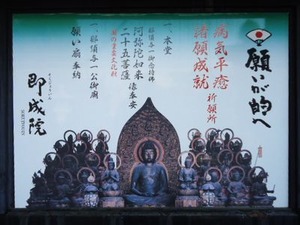 願いが的へ
病気平癒
諸願成就
祈願所
一、本堂
阿弥陀如来
二十五菩薩
像奉安
一、那須与一公御廟
願い扇奉納
即成院